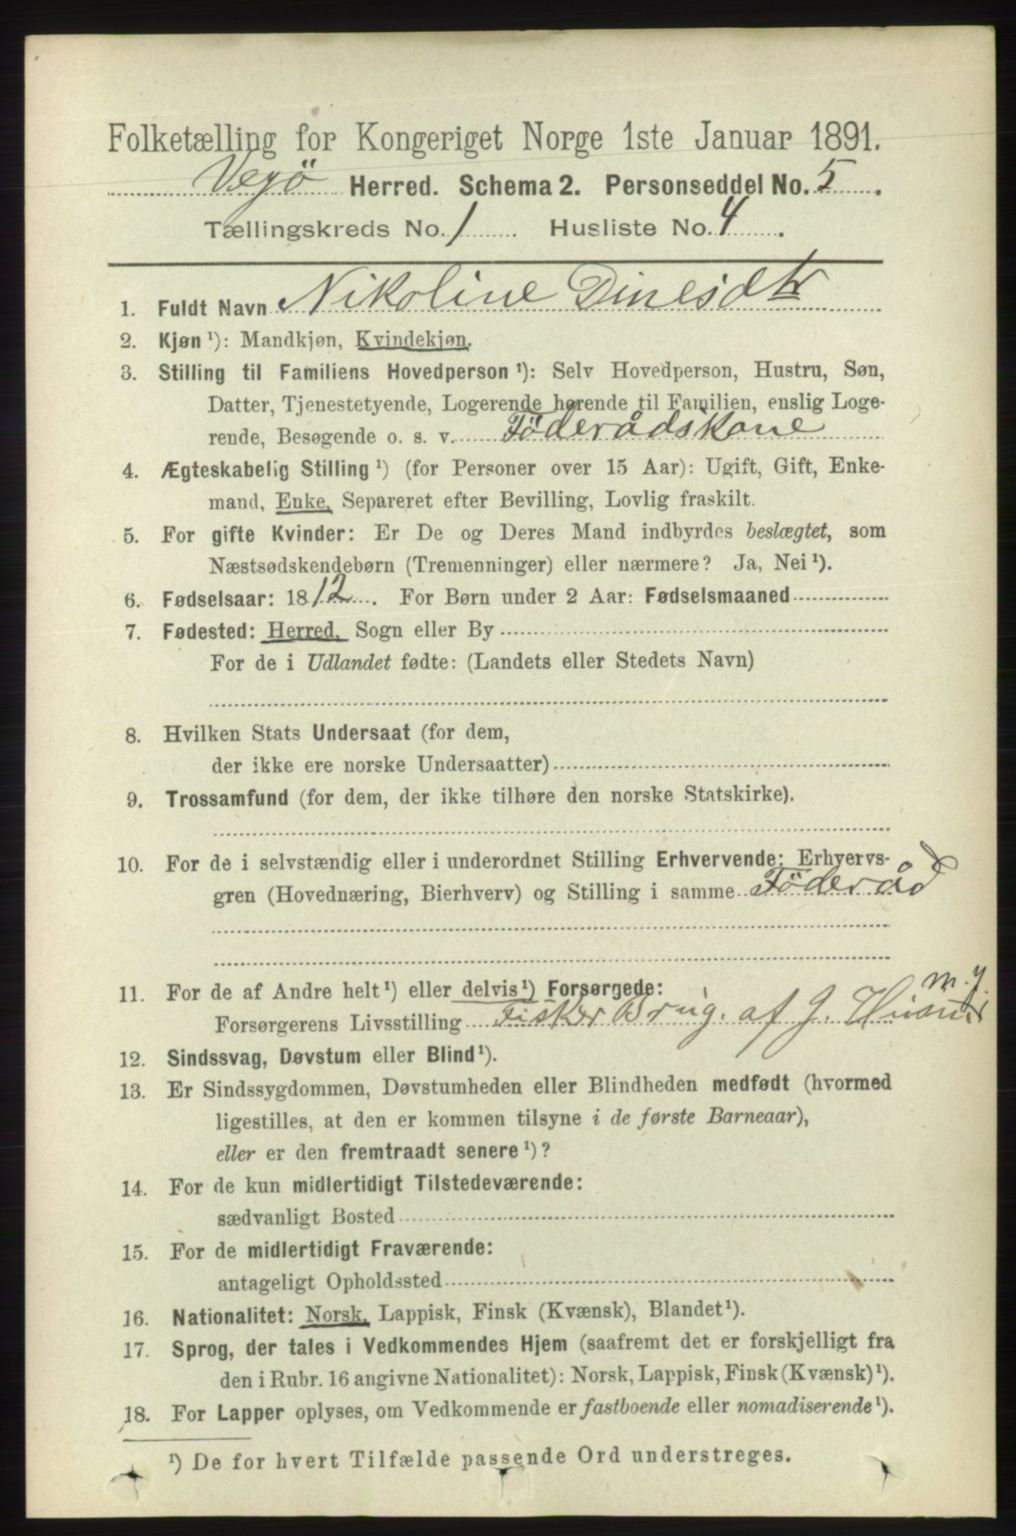 Folketælling for Kongeriget Norge 1ste Januar 1891.
Vegö Herred. Schema 2. Personseddel No. 5.
Tællingskreds No. 1. Husliste No. 4.
1. Fuldt Navn Nikoline Dinesdtr
2. Kjøn ¹): Mandkjøn, Kvindekjøn.
3. Stilling til Familiens Hovedperson ¹): Selv Hovedperson, Hustru, Søn,
Datter, Tjenestetyende, Logerende hørende til Familien, enslig Loge-
rende, Besøgende o. s. v. Föderådskone
4. Ægteskabelig Stilling ¹) (for Personer over 15 Aar): Ugift, Gift, Enke-
mand, Enke, Separeret efter Bevilling, Lovlig fraskilt.
5. For gifte Kvinder: Er De og Deres Mand indbyrdes beslægtet, som
Næstsødskendebørn (Tremenninger) eller nærmere? Ja, Nei ¹).
6. Fødselsaar: 1812. For Børn under 2 Aar: Fødselsmaaned
7. Fødested: Herred, Sogn eller By
For de i Udlandet fødte: (Landets eller Stedets Navn)
8. Hvilken Stats Undersaat (for dem,
der ikke ere norske Undersaatter)
9. Trossamfund (for dem, der ikke tilhøre den norske Statskirke).
10. For de i selvstændig eller i underordnet Stilling Erhvervende: Erhvervs-
gren (Hovednæring, Bierhverv) og Stilling i samme Föderåd
11. For de af Andre helt ¹) eller delvis ¹) Forsørgede:
Forsørgerens Livsstilling Fisker Brug. af J. Husm.
12. Sindssvag, Døvstum eller Blind ¹).
13. Er Sindssygdommen, Døvstumheden eller Blindheden medfødt (hvormed
ligestilles, at den er kommen tilsyne i de første Barneaar),
eller er den fremtraadt senere ¹)?
14. For de kun midlertidigt Tilstedeværende:
sædvanligt Bosted
15. For de midlertidigt Fraværende:
antageligt Opholdssted
16. Nationalitet: Norsk, Lappisk, Finsk (Kvænsk), Blandet ¹).
17. Sprog, der tales i Vedkommendes Hjem (saafremt det er forskjelligt fra
den i Rubr. 16 angivne Nationalitet): Norsk, Lappisk, Finsk (Kvænsk) ¹).
18. For Lapper oplyses, om Vedkommende er fastboende eller nomadiserende ¹).
¹) De for hvert Tilfælde passende Ord understreges.